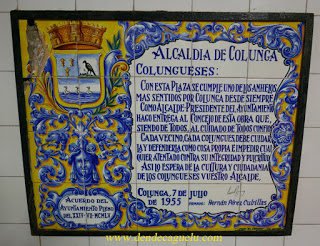 ALCALDIA DE COLUNGA
COLUNGUESES:
CON ESTA PLAZA SE CUMPLE UNO DE LOS ANHELOS
MAS SENTIDOS POR COLUNGA DESDE SIEMPRE
COMO ALCALDE-PRESIDENTE DEL AYUNTAMIENTO
HAGO ENTREGA AL CONCEJO DE ESTA OBRA QUE,
SIENDO DE TODOS, AL CUIDADO DE TODOS CONFIO
CADA VECINO, CADA COLUNGUES, DEBE CUIDAR
LA Y DEFENDERLA COMO COSA PROPIA E IMPEDIR CUAL
QUIER ATENTADO CONTRA SU INTEGRIDAD Y PULCRITUD
ASI LO ESPERA DE LA CULTURA Y CIUDADANIA
DE LOS COLUNGUESES VUESTRO ALCALDE,
COLUNGA, 7 DE JULIO
DE 1955
FIRMADO: Hernán Pérez Cubillas
ACUERDO DEL
AYUNTAMIENTO PLENO
DEL XXII-VII-MCMLV
www.dendecaguelu.com